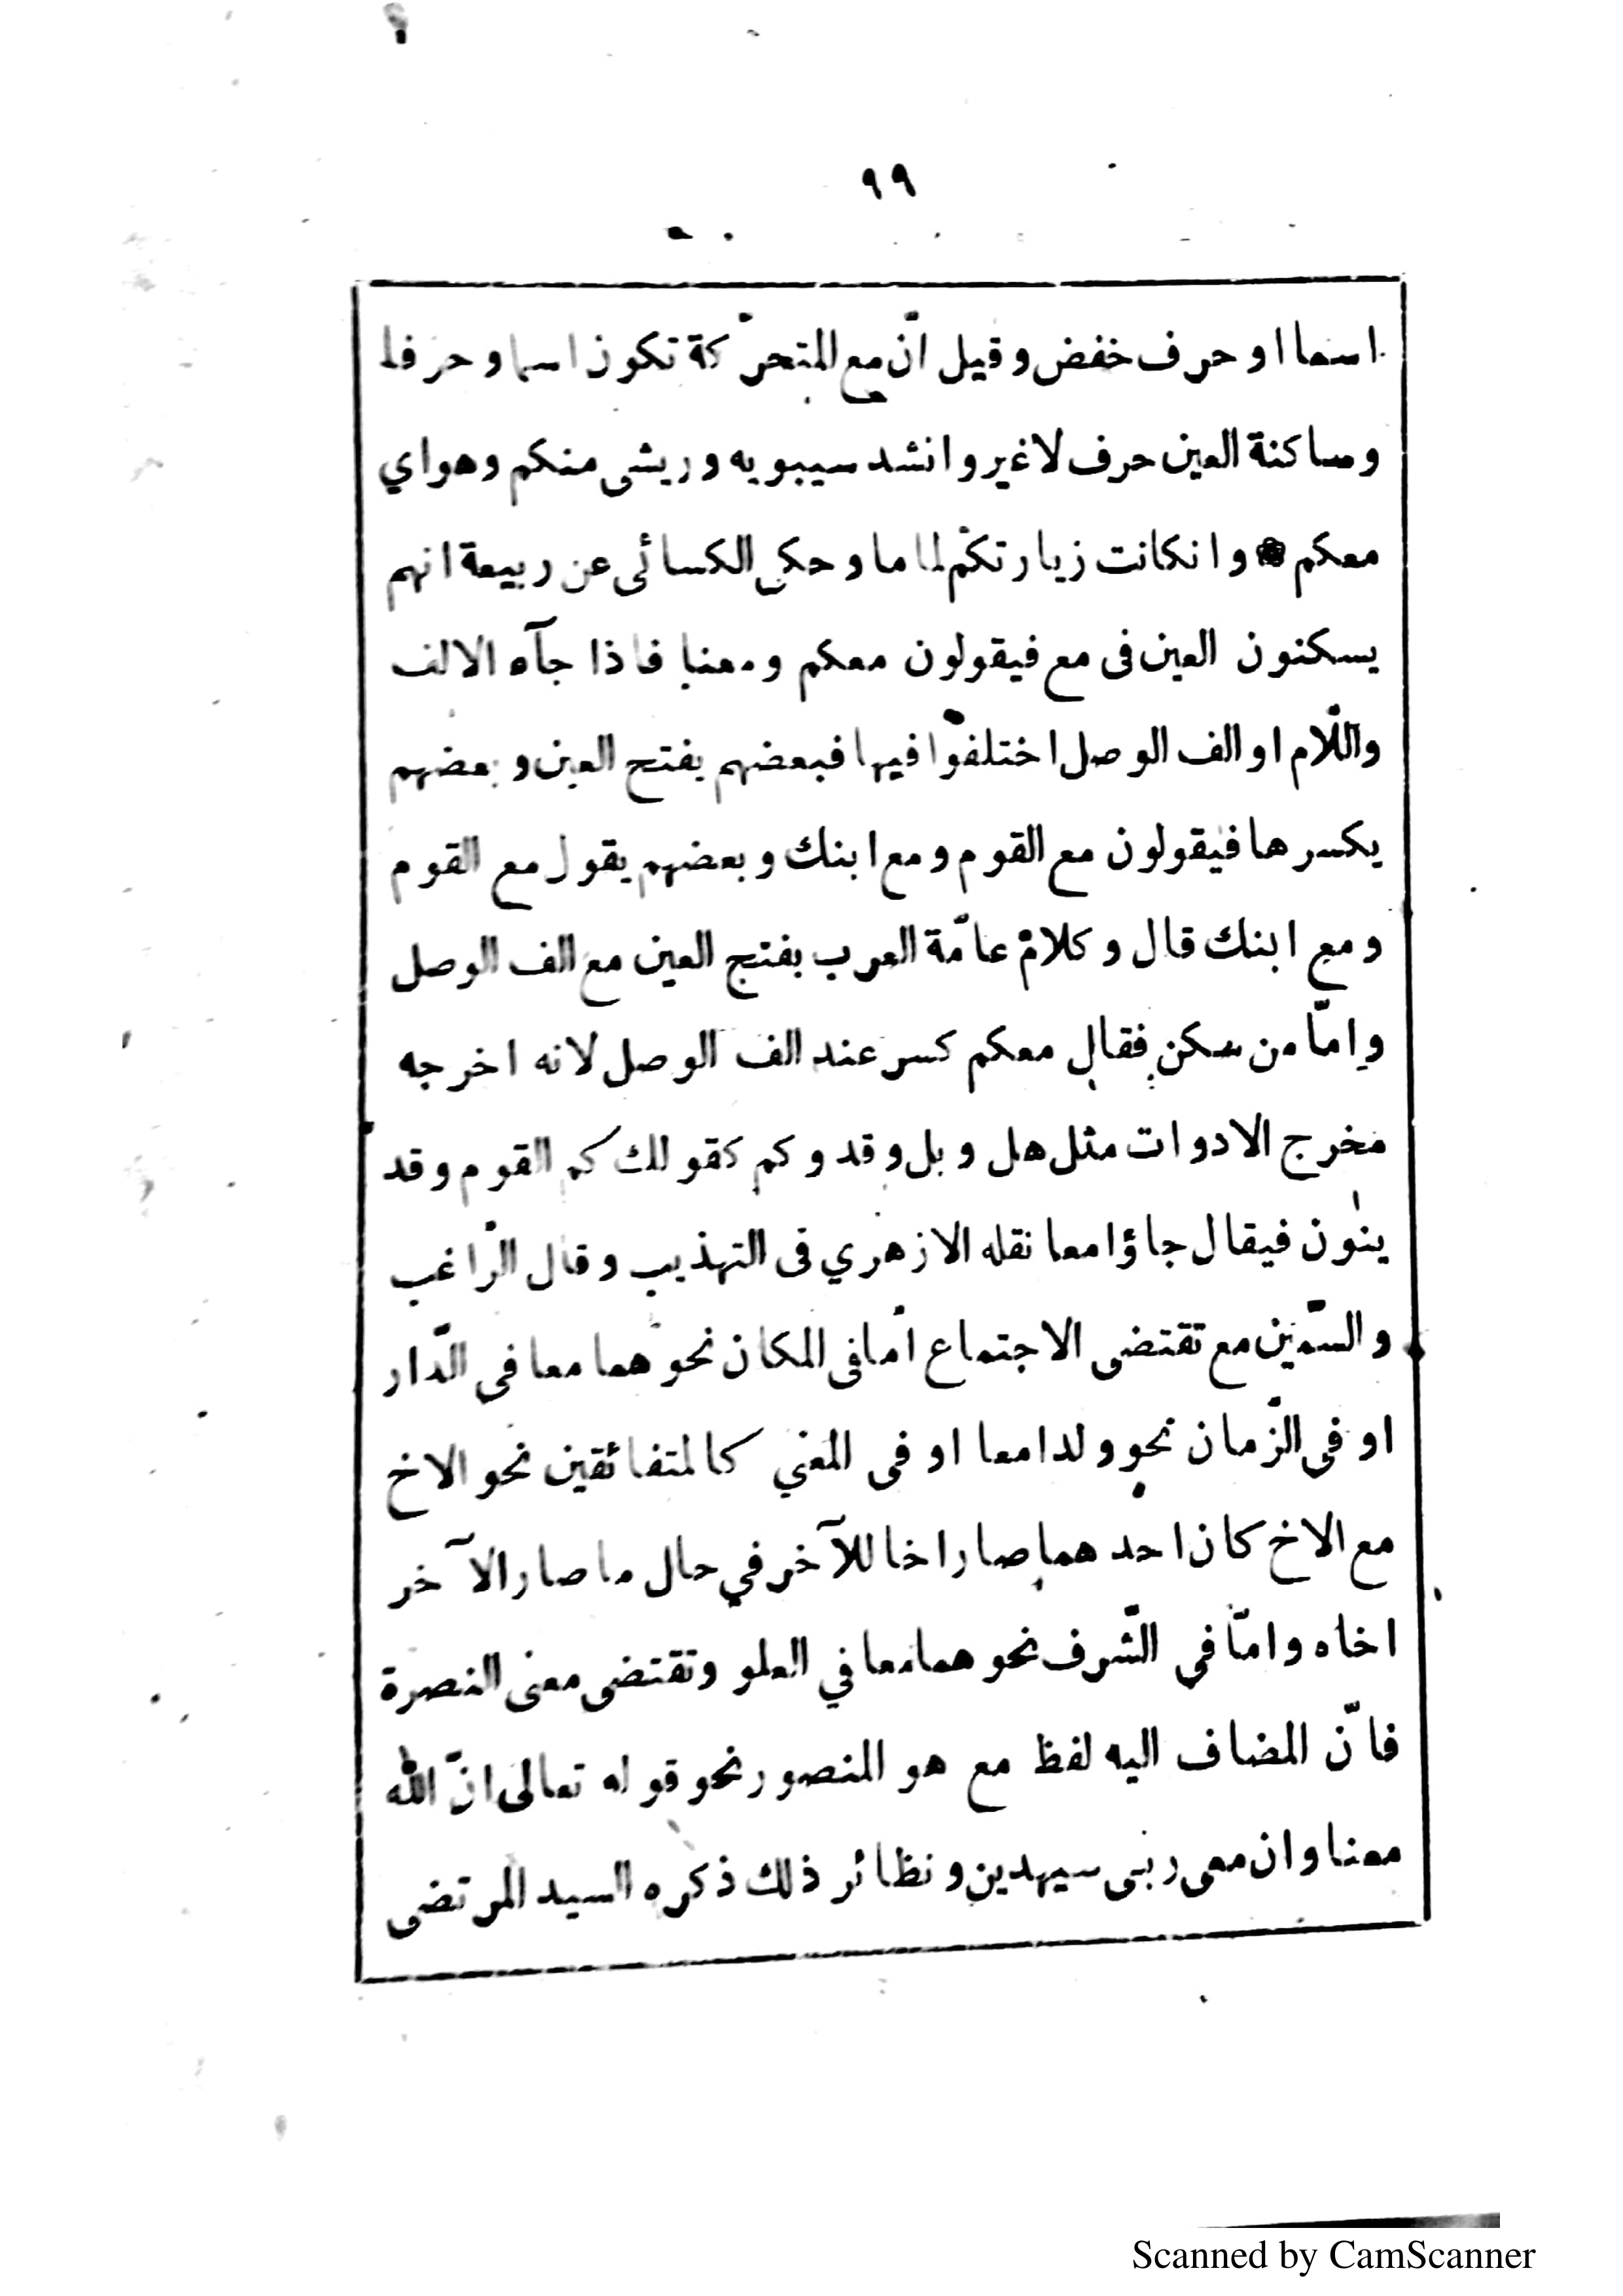 ٩٩
اسما او حرف خفض وقيل انّ مع المتحرّكة تكون اسما وحرفا
وساكنة العين حرف لاغير وانشد سيبويه وريشى منكم وهواي
معكم وانكانت زيارتكم لماما وحكى الكسائى عن ربيعة انهم
يسكنون العين فى مع فيقولون معكم ومعنا فاذا جآه الالف
واللّام او الف الوصل اختلفوا فيها فبعضهم بفتح العين وبعضهم
يكسرها فيقولون مع القوم ومع ابنك وبعضهم يقول مع القوم
ومع ابنك قال وكلام عامّة العرب بفتح العين مع الف الوصل
وامّا من سكن فقال معكم كسر عند الف الوصل لانه اخرجه
مخرج الادوات مثل هل وبل وقد وكم كقولك كم القوم وقد
ينون فيقال جاؤا معا نقله الازهري فى التهذيب وقال الرّاغب
والسّمين مع تقتضى الاجتماع امّا فى المكان نحو هما معا فى الدّار
او فى الزّمان نحو ولدا معا او فى المعني كالمتفائقين نحو الاخ
مع الاخ كان احدهما صار اخا للآخر في حال ما صار الآخر
اخاه وامّا فى الشّرف نحو هما معا في العلو وتقتضى معنى النصرة
فانّ المضاف اليه لفظ مع هو المنصور نحو قوله تعالى انّ الله
معنا وان معى ربى سيهدين ونظائر ذلك ذكره السيد المرتضى
Scanned by CamScanner